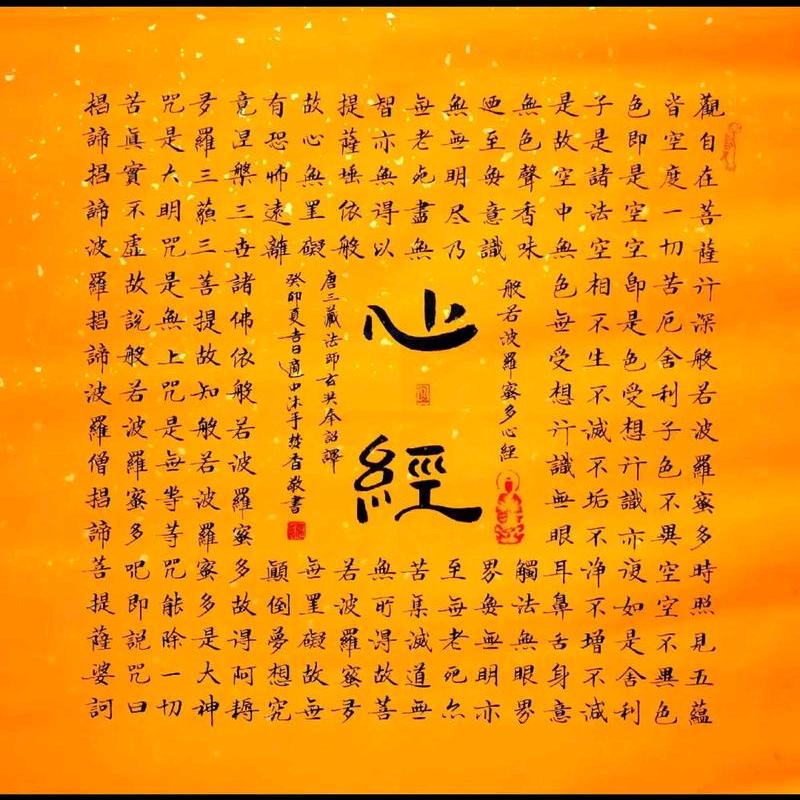 觀自在菩薩行深般若波羅蜜多時照見五蘊
皆空度一切苦厄舍利子色不異空空不異色
色即是空空即是色受想行識亦復如是舍利
子是諸法空相不生不滅不垢不淨不增不減
是故空中無色無受想行識無眼耳鼻舌身意
無色聲香味觸法無眼界
迺至無意識界無無明亦
無無明尽乃至無老死亦
無老死盡無苦集滅道無
智亦無得以無所得故菩
提薩埵依般若波羅蜜多
故心無罣礙無罣礙故無
有恐怖遠離顛倒夢想究
竟涅槃三世諸佛依般若波羅蜜多故得阿耨
多羅三藐三菩提故知般若波羅蜜多是大神
咒是大明咒是無上咒是無等等咒能除一切
苦真實不虛故說般若波羅蜜多呪即說咒曰
揭諦揭諦波羅揭諦波羅僧揭諦菩提薩婆訶
般若波羅蜜多心經
心經
唐三藏法師玄奘奉詔譯
癸卯夏吉日適中沐手焚香敬書